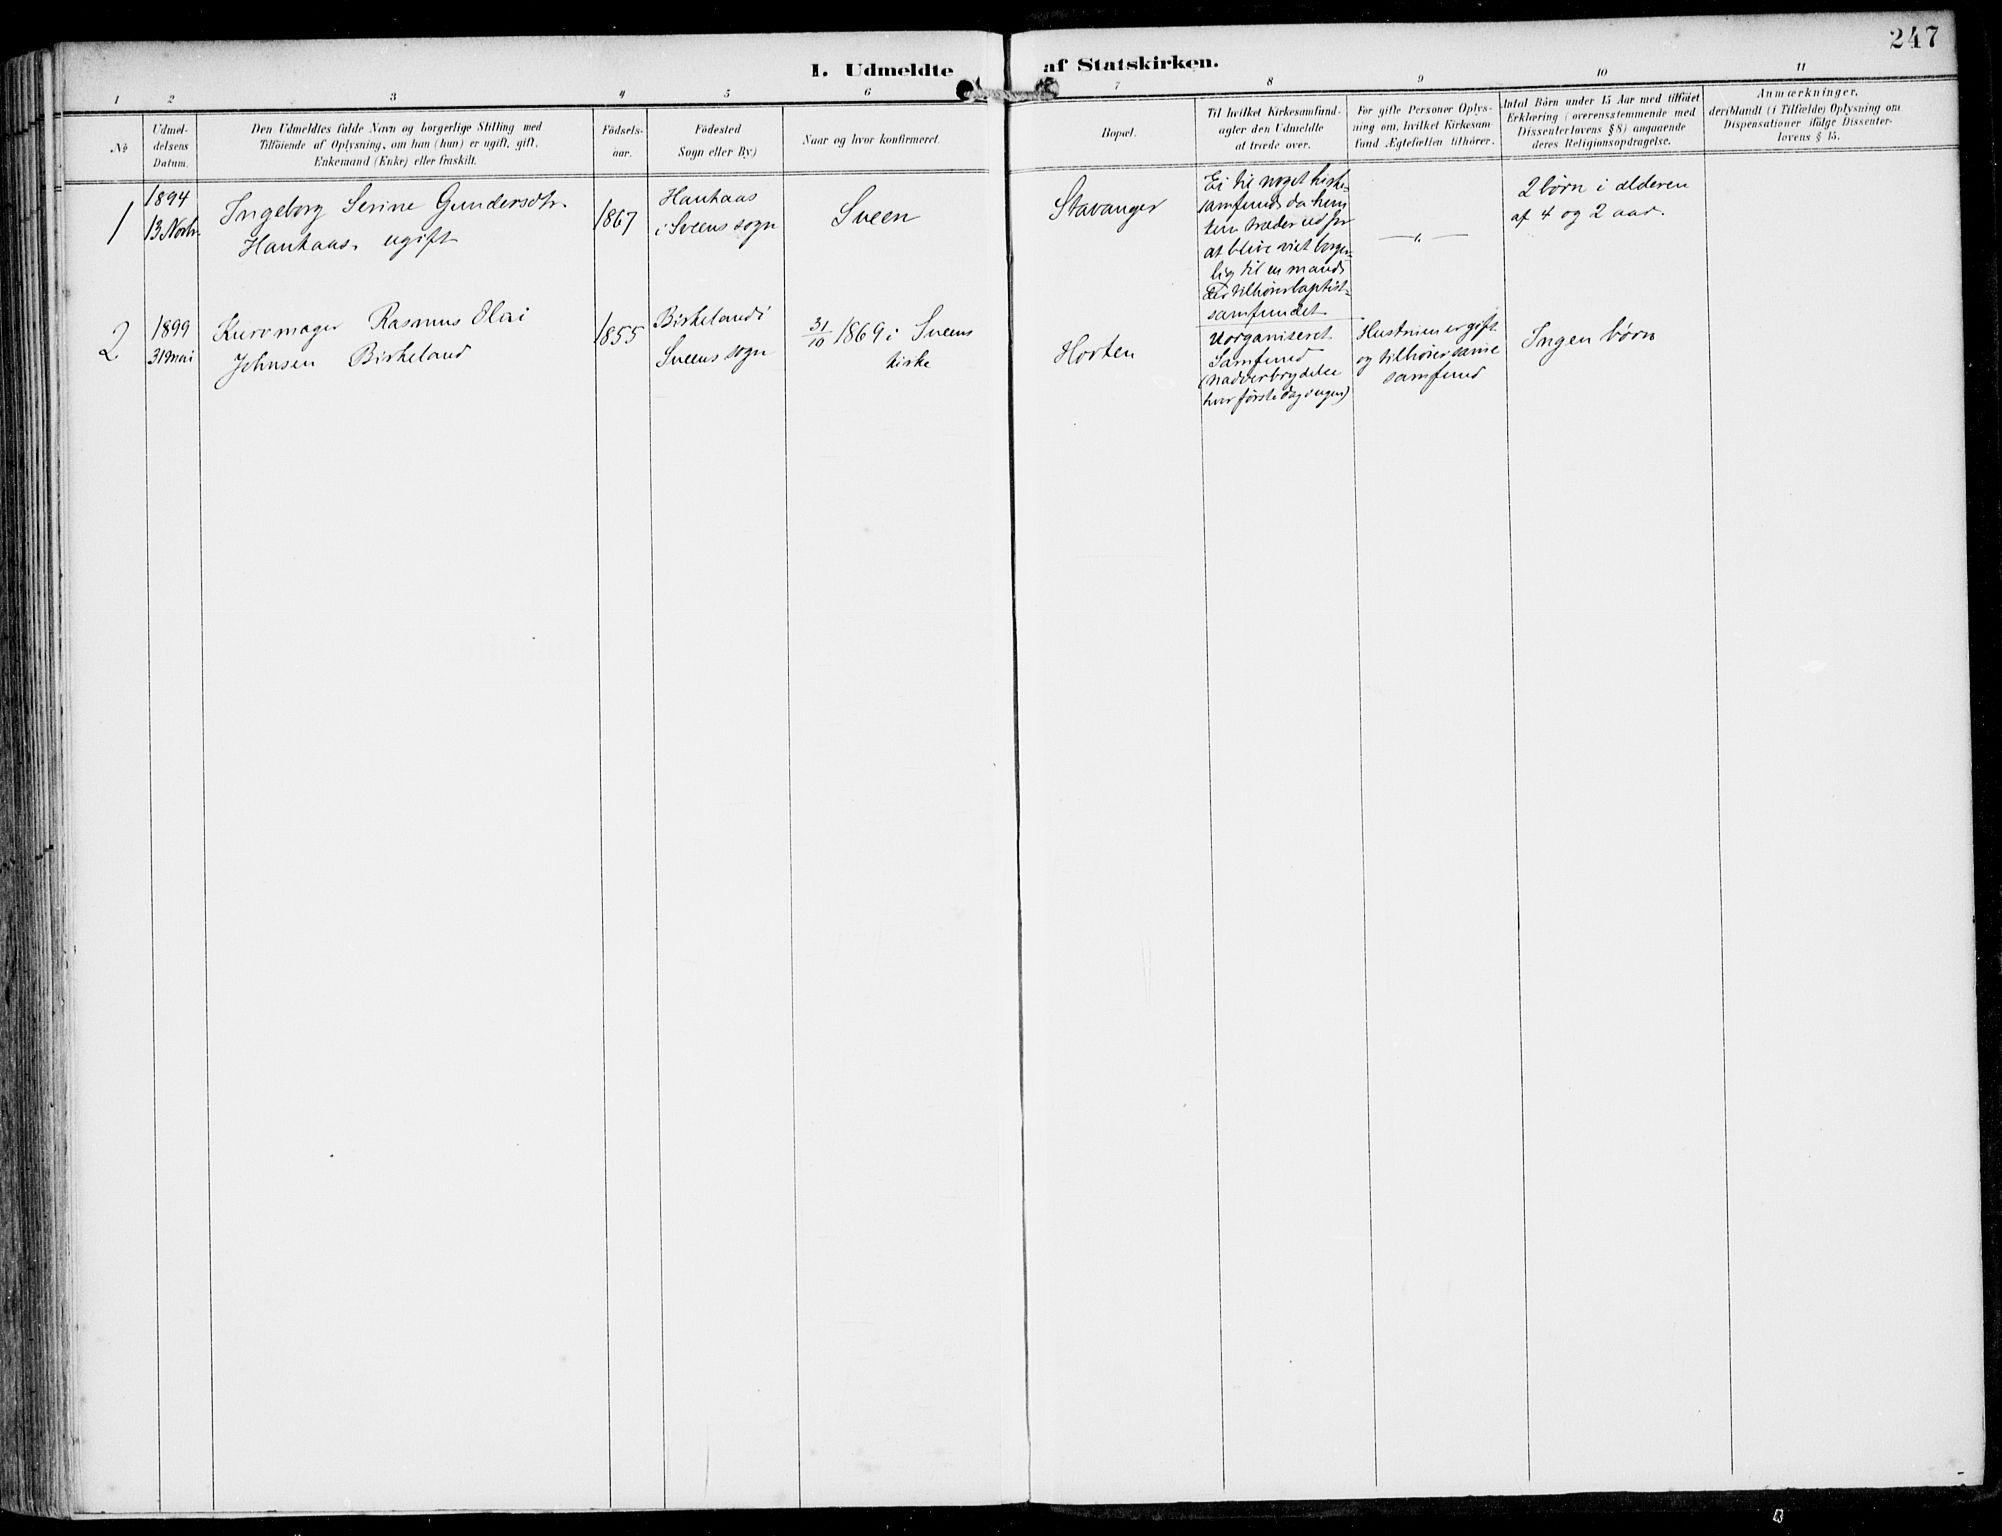 247
I. Udmeldte af Statskirken.
1 2 3 4 5 6 7 8 9 10 11
No
Udmel-
delsens
Datum.
Den Udmeldtes fulde Navn og borgerlige Stilling med
Tilföiende af Oplysning, om han (hun) er ugift, gift,
Enkemand (Enke) eller fraskilt.
Födsels-
aar.
Födested
Sogn eller By)
Naar og hvor konfirmeret.
Bopæl.
Til hvilket Kirkesamfund-
agter den Udmeldte
at træde over.
For gifte Personer Oplys-
ning om, hvilket Kirkesam-
fund Ægtefællen tilhörer.
Antal Börn under 15 Aar med tilföiet
Erklæring (overensstemmende med
Dissenterlovens § 8) angaaende
deres Religionsopdragelse.
Anmærkninger,
deriblandt (i Tilfælde) Oplysning om
Dispensationer ifölge Dissenter-
lovens § 15.
1
1894
13 Novbr.
Ingeborg Serine Gundersdtr.
Haukaas, ugift
1867
Haukaas
i Sveens sogn
Sveen
Stavanger
Ei til noget kirke-
samfund da hen
træder ud for
at blive viet borger-
lig til en mand
der tilhører baptist-
samfundet.
—"—
2 børn i alderen
af 4 og 2 aar.
2
1899
31 mai
Kurvmager Rasmus Olai
Johnsen Birkeland
1855
Birkeland i
Sveens sogn
31/10 1869 i Sveens
kirke
Horten
Uorganiseret
Samfund
(nadverbrydelse
hver første dag i ugen)
Hustruen er gift
og tilhører samme
samfund
Ingen børn